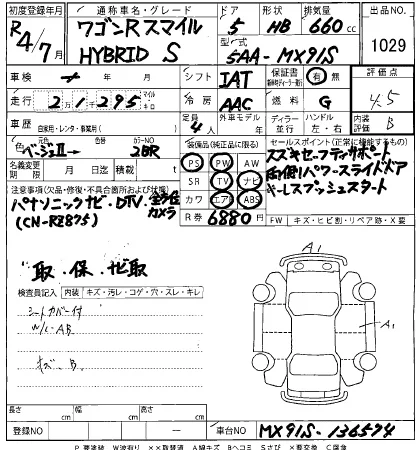 初度登録年月 通称車名・グレード ドア 形状 排気量 出品NO.
R4/7月 ワゴンRスマイル HYBRID S 5 HB 660cc 1029
型式 5AA-MX91S
車検 年 月 シフト IAT 保証書 有 無 評価点
走行 2万1千295 マイル キロ 冷房 AAC 燃料 G 4.5
車歴 自家用・レンタ・事業用( ) 定員 4人 外車モデル 年 ディーラー 並行 ハンドル 左・右 内装 B
色 ベージュII→ 色替 カラーNO 2BR 装備品(純正品に限る) セールスポイント(正常に機能するもの)
名義変更期限 月 日 積載 t PS PW AW スズキセーフティサポート
SR TV ナビ 両側パワースライドドア
カワ エアB ABS キーレスプッシュスタート
注意事項(欠品・修復・不具合箇所および状態) R券 6880円 FW キズ・ヒビ割・リペア跡・X要
パナソニックナビ・DTV・全方位カメラ
(CN-RZ875)
取・保・ナビ取
検査員記入 内装 キズ・汚レ・コゲ・穴・スレ・キレ
シートカバー付
W/L・AB
A1
A1
長さ cm 幅 cm 高さ cm
登録NO ー 車台NO MX91S-136574
P 要塗装 W波有り ××取替済 A線キズ Bヘコミ Sさび ×要交換 C腐食